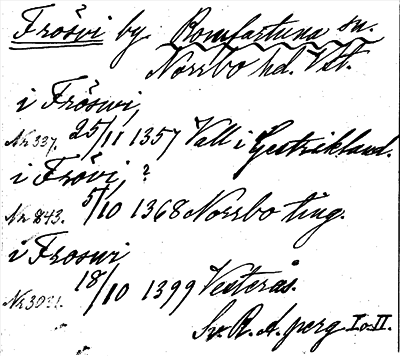 Frösvi by Romfartuna sn.
Norrbo hd. Vstl.
i Fröswi
Nr 337. 25/11 1357 Vall i Gestrikland.
i Frövi ?
Nr 843. 5/10 1368 Norrbo ting.
i Froswi
Nr 3031. 18/10 1399 Vesterås.
" " Sv. R. A. perg I o. II.